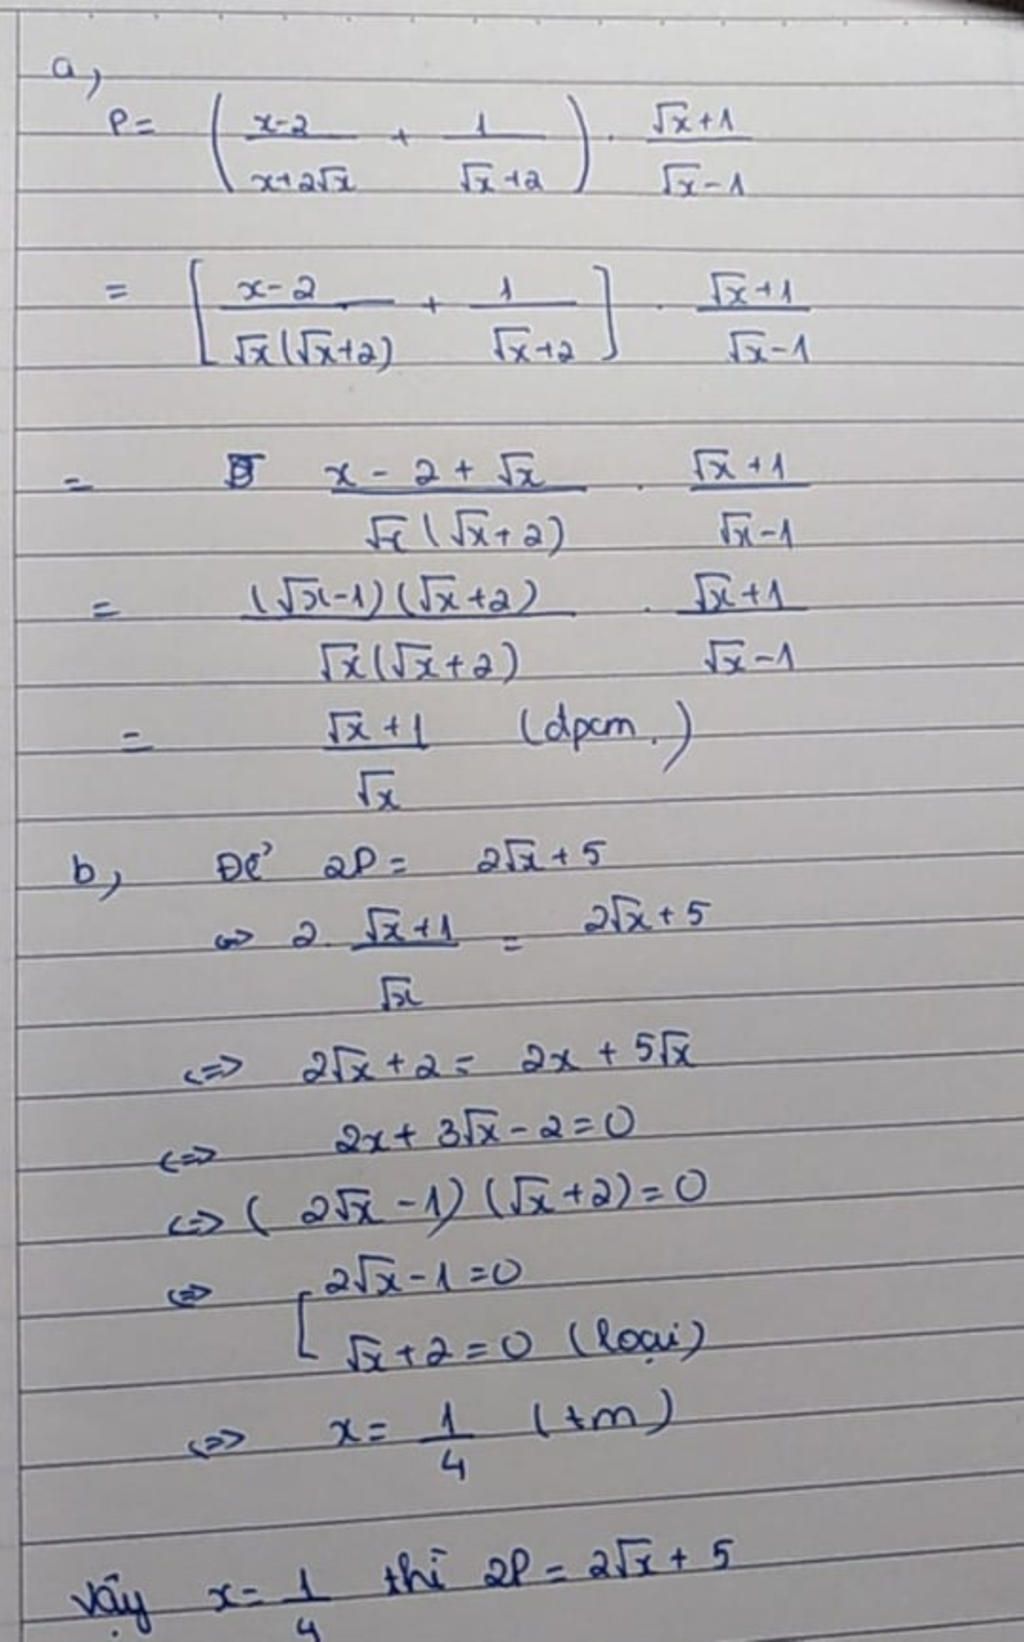 a,
P = ( (x-2)/(x+2√x) + 1/(√x+2) ) . (√x+1)/(√x-1)
= [ (x-2)/(√x(√x+2)) + 1/(√x+2) ] . (√x+1)/(√x-1)
= (x - 2 + √x)/(√x(√x+2)) . (√x+1)/(√x-1)
= ((√x-1)(√x+2))/(√x(√x+2)) . (√x+1)/(√x-1)
= (√x+1)/√x (dpcm.)
b, Để 2P = 2√x + 5
⇔ 2. (√x+1)/√x = 2√x + 5
⇔ 2√x + 2 = 2x + 5√x
⇔ 2x + 3√x - 2 = 0
⇔ ( 2√x - 1) (√x + 2) = 0
⇔ [ 2√x - 1 = 0
√x + 2 = 0 (loại)
⇔ x = 1/4 (tm)
Vậy x = 1/4 thì 2P = 2√x + 5